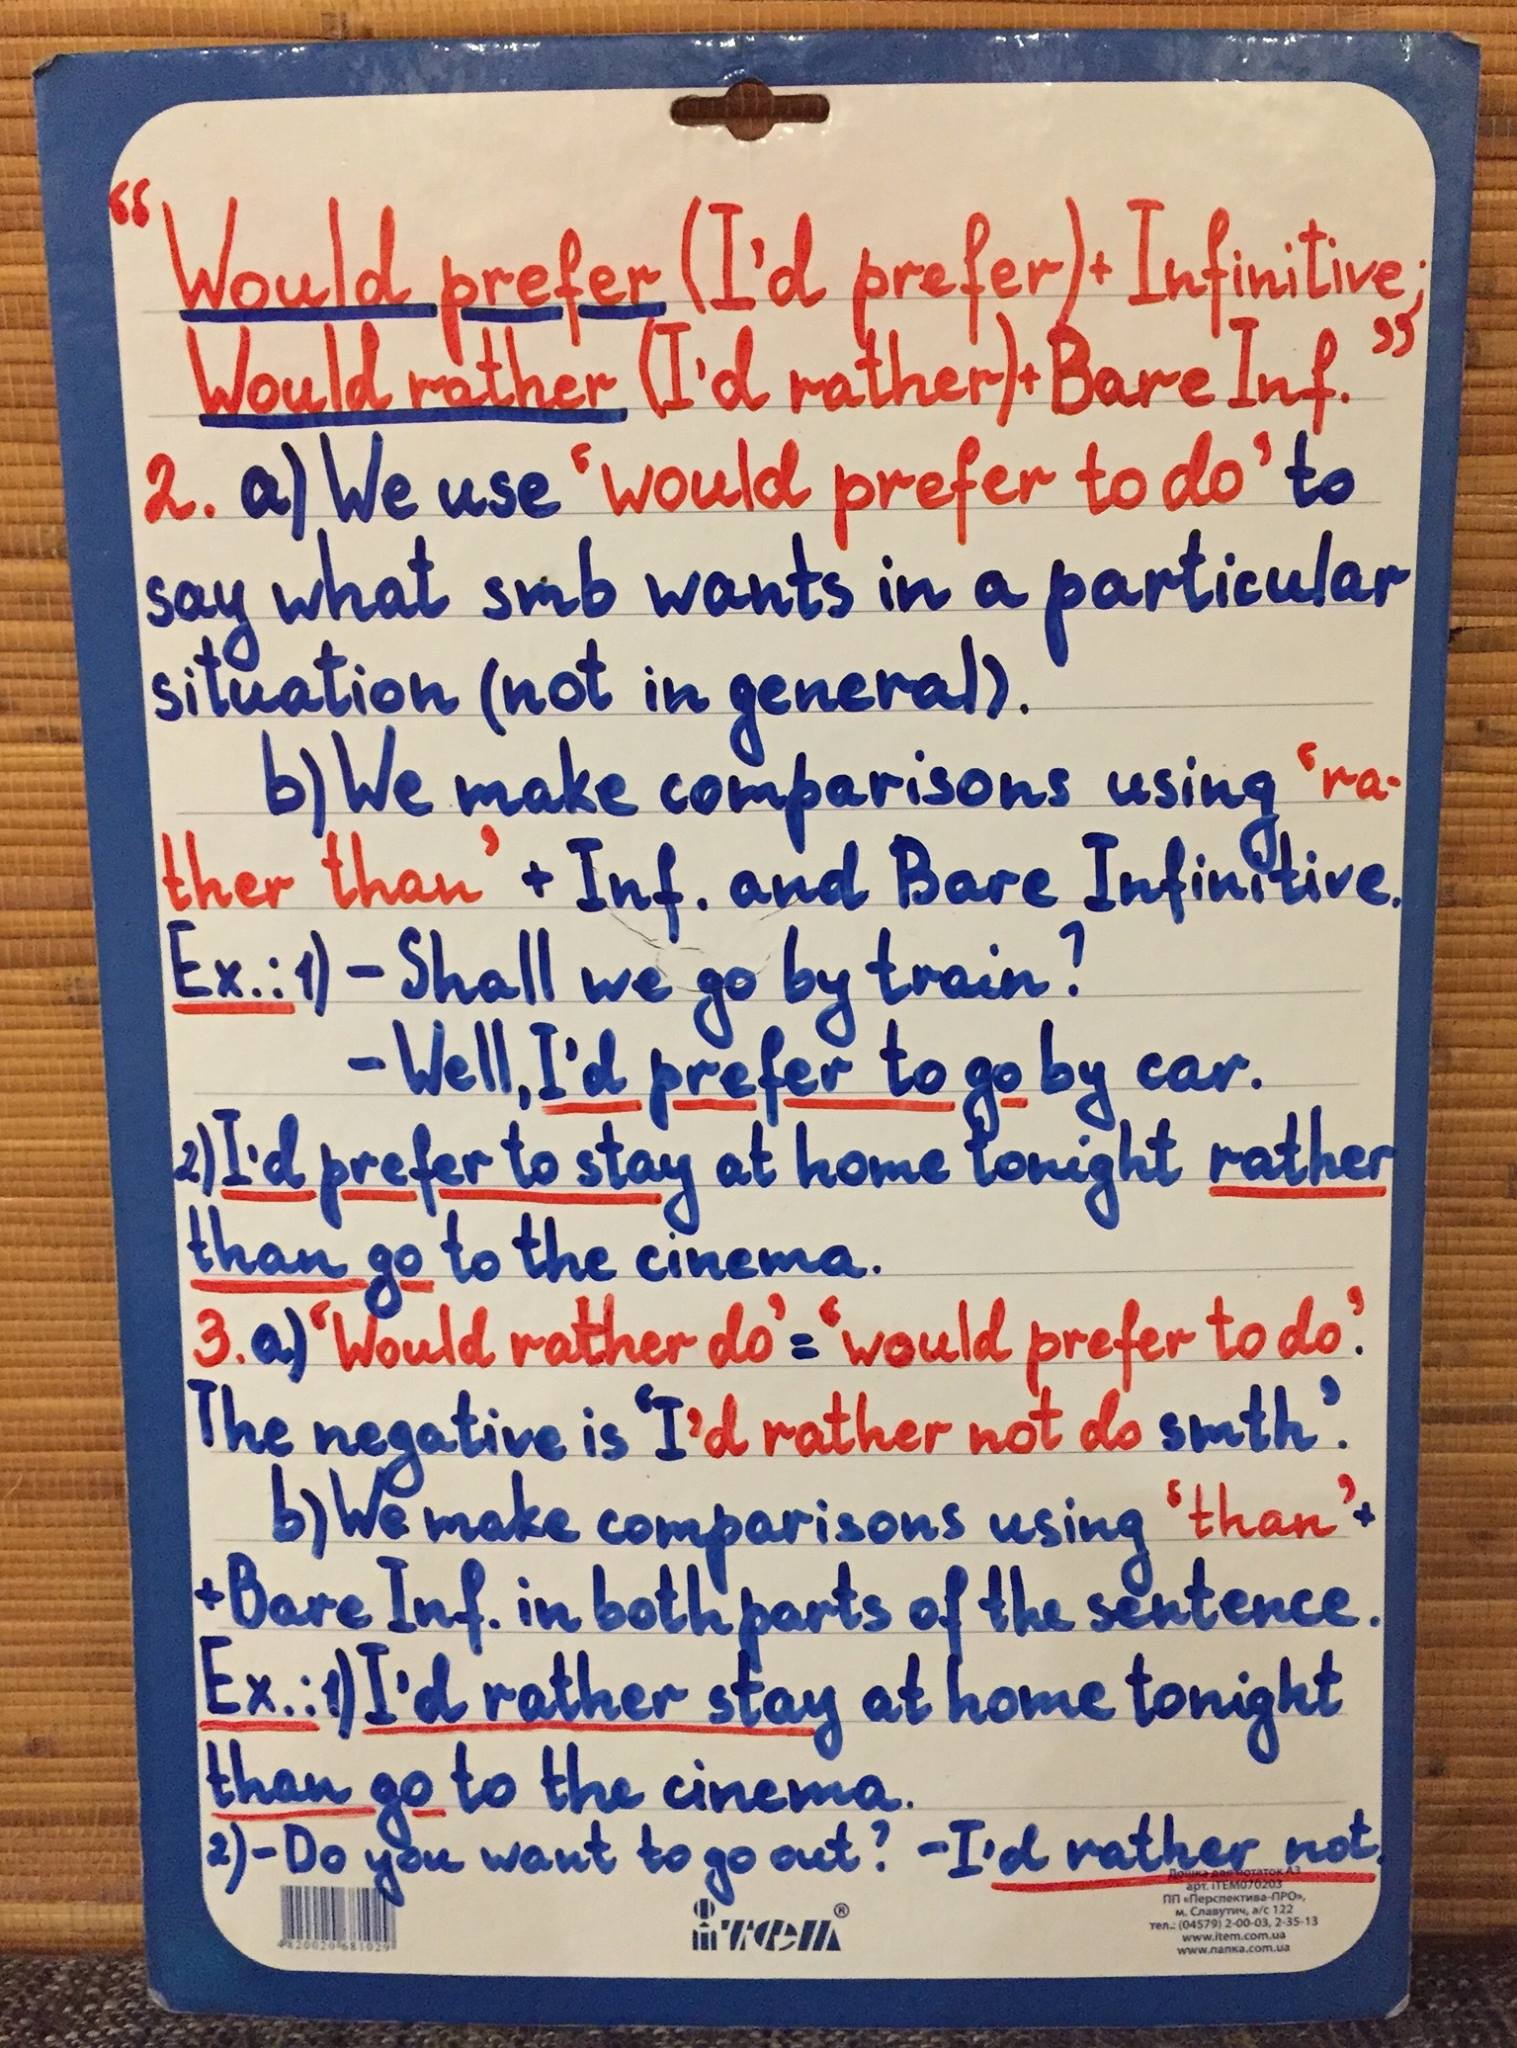 “Would prefer (I'd prefer)+ Infinitive;
Would rather (I'd rather)+Bare Inf.”
2. a) We use ‘would prefer to do’ to
say what smb wants in a particular
situation (not in general).
b) We make comparisons using ‘ra-
ther than’ + Inf. and Bare Infinitive.
Ex.: 1) - Shall we go by train?
- Well, I'd prefer to go by car.
2) I'd prefer to stay at home tonight rather
than go to the cinema.
3. a) ‘Would rather do’ = ‘would prefer to do’.
The negative is ‘I'd rather not do smth’.
b) We make comparisons using ‘than’ +
+ Bare Inf. in both parts of the sentence.
Ex.: 1) I'd rather stay at home tonight
than go to the cinema.
2) - Do you want to go out? - I'd rather not.
Дошка для нотаток А3
арт. iTEM070203
ПП «Перспектива-ПРО»,
м. Славутич, а/с 122
тел.: (04579) 2-00-03, 2-35-13
www.item.com.ua
www.папка.com.ua
iTEM®
4820020681029